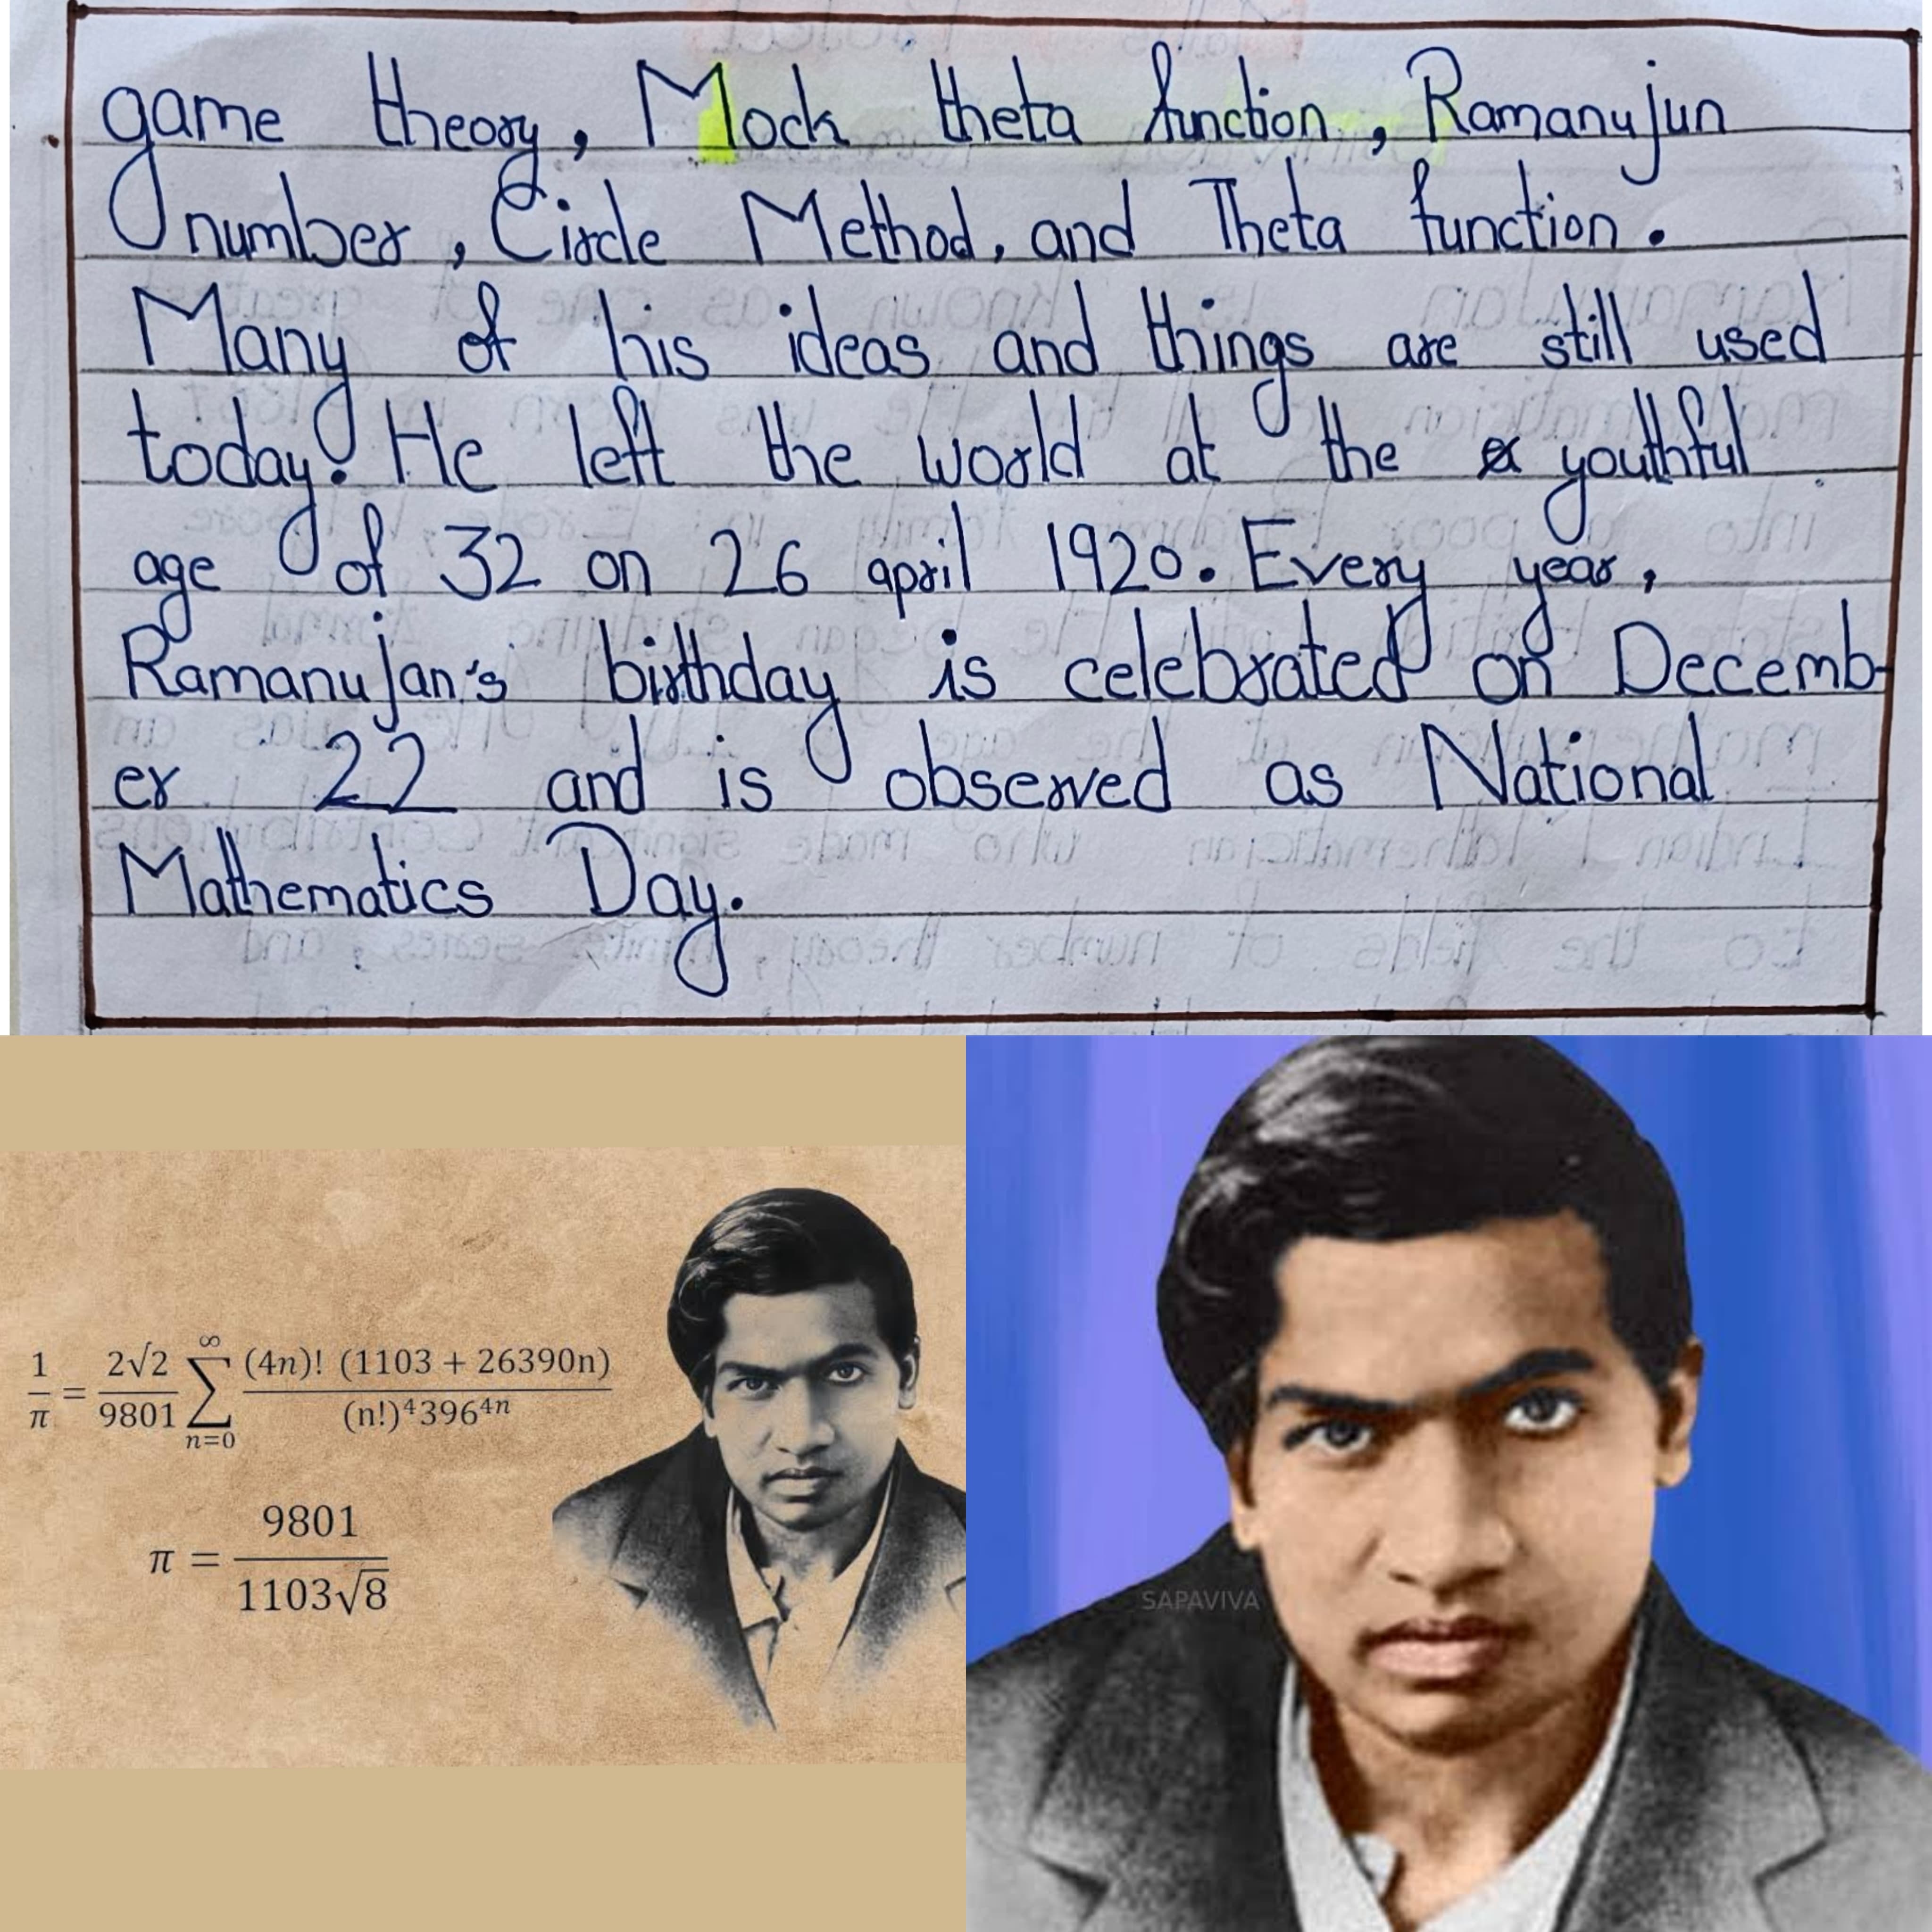 game theory, Mock theta function, Ramanujun
number, Circle Method, and Theta function.
Many of his ideas and things are still used
today. He left the world at the youthful
age of 32 on 26 april 1920. Every year,
Ramanujan's birthday is celebrated on Decemb-
er 22 and is observed as National
Mathematics Day.
1/π = 2√2/9801 ∑_{n=0}^{∞} (4n)! (1103 + 26390n)/(n!)⁴396⁴ⁿ
π = 9801/1103√8
SAPAVIVA